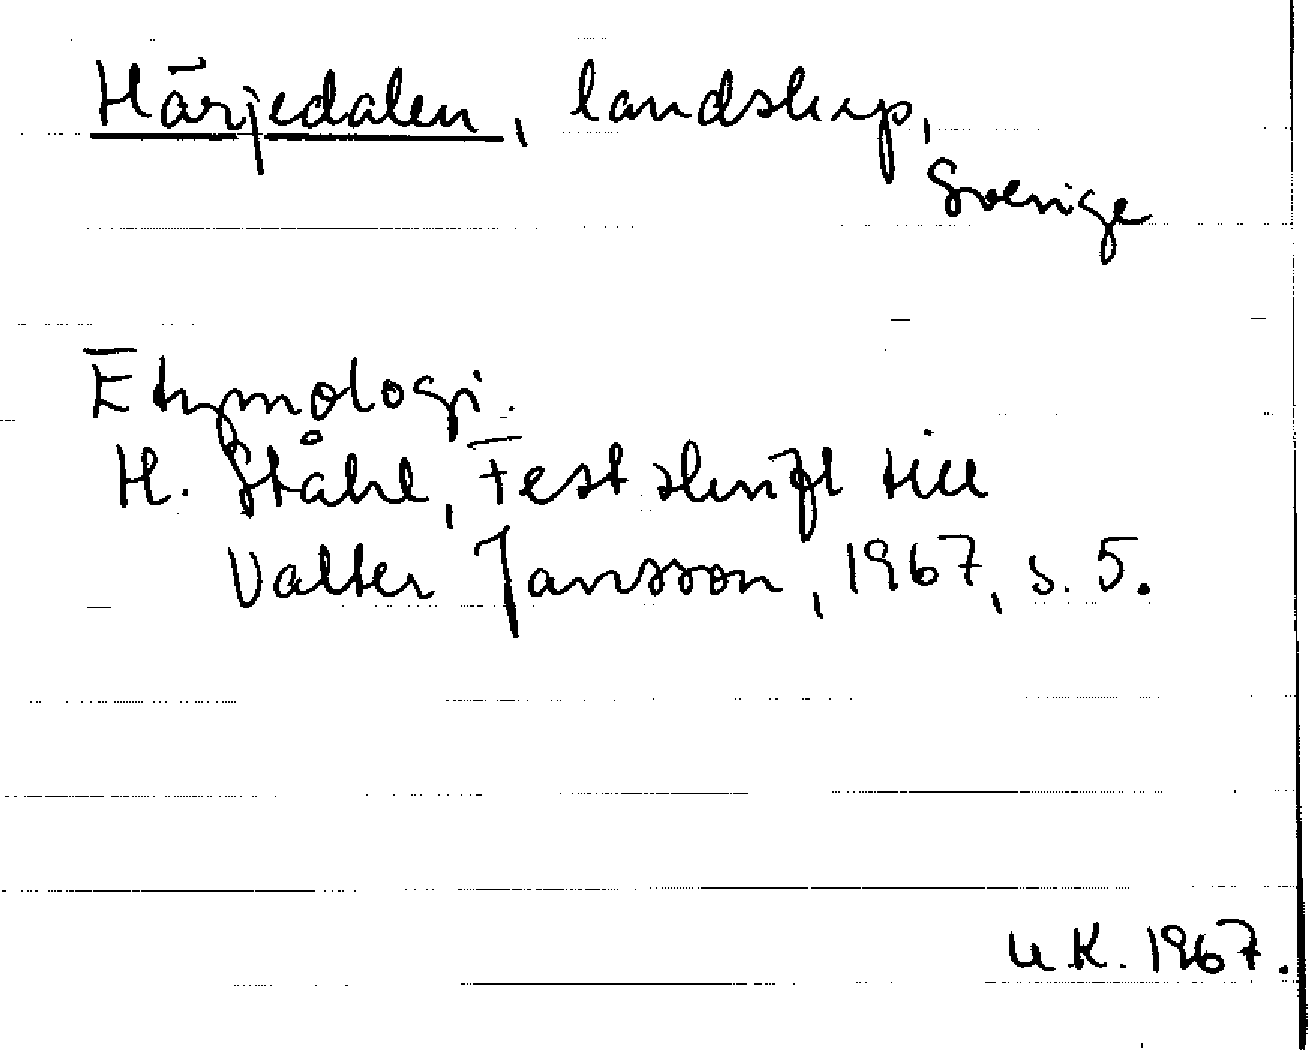 Härjedalen, landskap,
Sverige
Etymologi.
H. Ståhl, Festskrift till
Valter Jansson, 1967, s. 5.
U K. 1967.